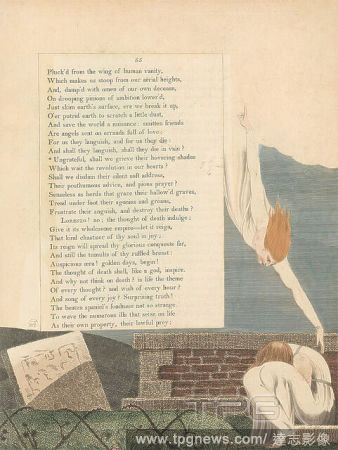 55
Pluck'd from the wing of human vanity,
Which makes us stoop from our aërial heights,
And, damp'd with omen of our own decease,
On drooping pinions of ambition lower'd,
Just skim earth's surface, ere we break it up,
O'er putrid earth to scratch a little dust,
And save the world a nuisance: smitten friends
Are angels sent on errands full of love;
For us they languish, and for us they die:
And shall they languish, shall they die in vain?
* Ungrateful, shall we grieve their hovering shades
Which wait the revolution in our hearts?
Shall we disdain their silent soft address,
Their posthumous advice, and pious prayer?
Senseless as herds that graze their hallow'd graves,
Tread under foot their agonies and groans,
Frustrate their anguish, and destroy their deaths?
Lorenzo! no; the thought of death indulge;
Give it its wholesome empire—let it reign,
That kind chastiser of thy soul in joy:
Its reign will spread thy glorious conquests far,
And still the tumults of thy ruffled breast:
Auspicious æra! golden days, begin!
The thought of death shall, like a god, inspire.
And why not think on death? is life the theme
Of every thought? and wish of every hour?
And song of every joy? Surprising truth!
The beaten spaniel's fondness not so strange.
To wave the numerous ills that seize on life
As their own property, their lawful prey:
TPG
www.tpgnews.com/
達志影像